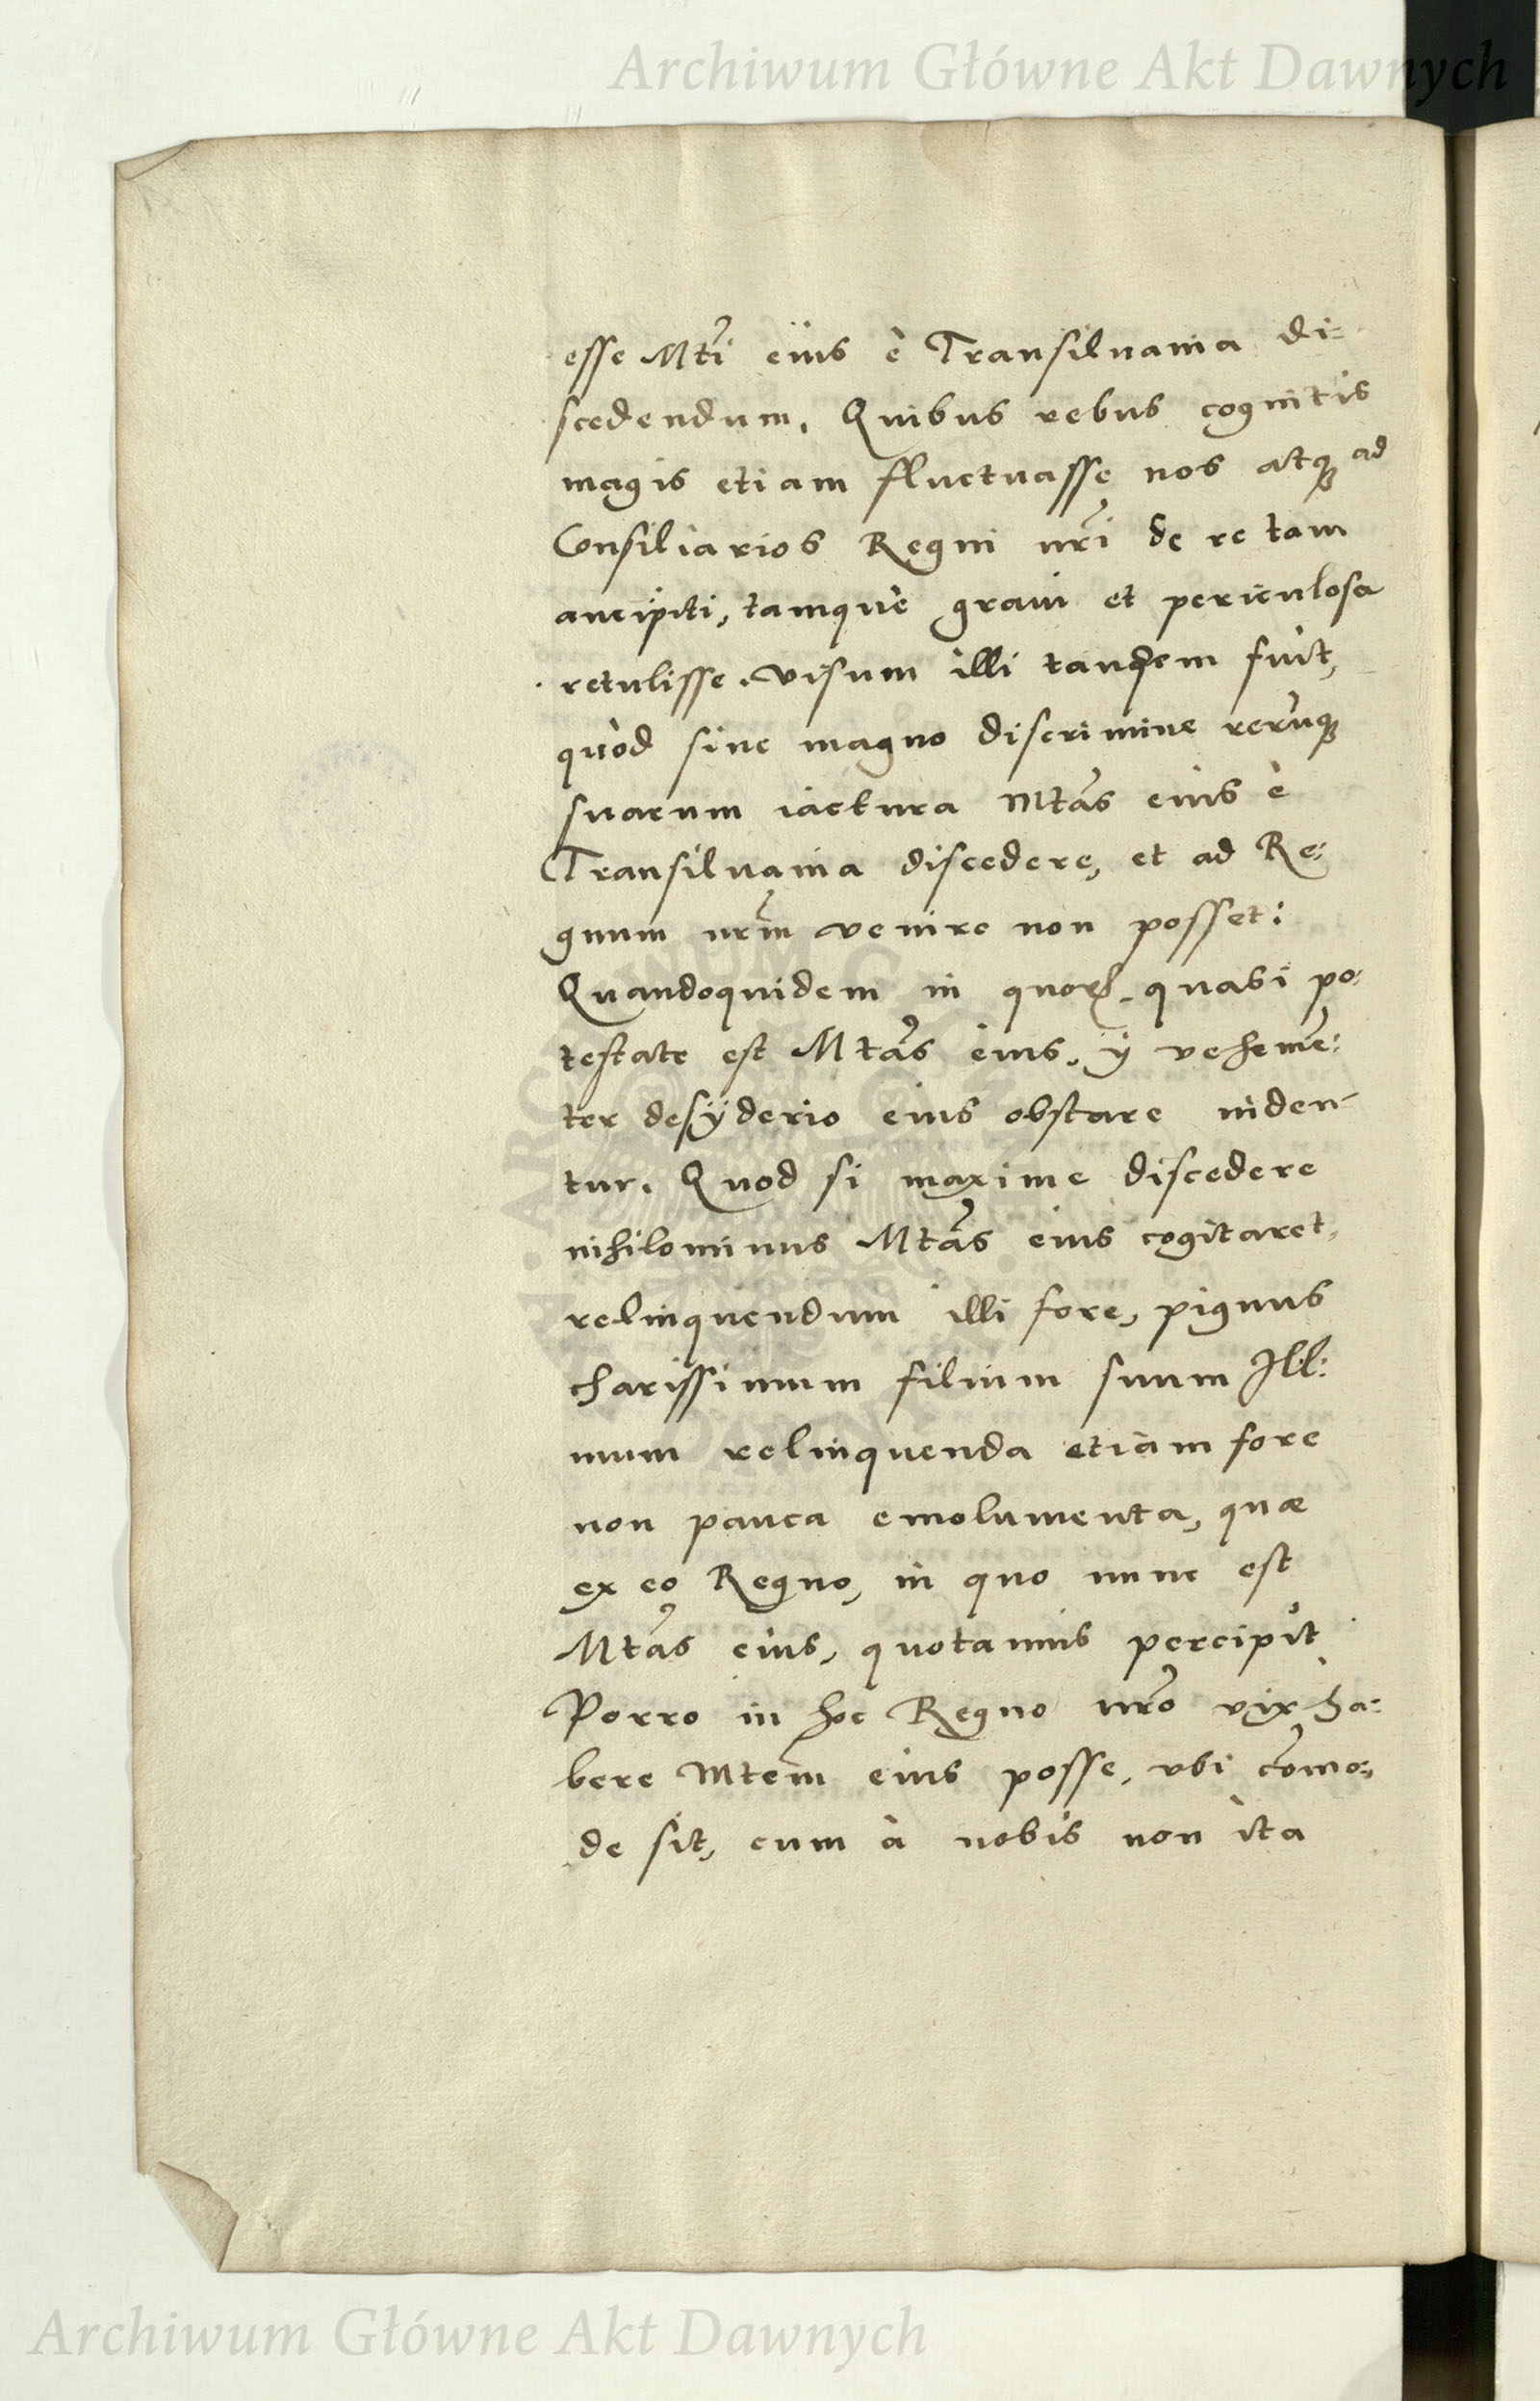 Archiwum Główne Akt Dawnych
esse Mtĩ eius è Transiluania di=
scedendum. Quibus rebus cognitis
magis etiam fluctuasse nos atq; ad
Consiliarios Regni nrĩ de re tam
ancipiti, tamque graui et periculosa
retulisse. Visum illi tandem fuit,
quòd sine magno discrimine rerũq;
suarum iactura Mtãs eius è
Transiluania discedere, et ad Re:
gnum nrm̃ venire non posset:
Quandoquidem in quorꝝ quasi po:
testate est Mtãs eius, ij vehemẽ:
ter desyderio eius obstare uiden-
tur. Quod si maxime discedere
nihilominus Mtãs eius cogitaret,
relinquendum illi fore, pignus
charissimum filium suum Ill:
mum relinquenda etiam fore
non pauca emolumenta, quæ
ex eo Regno, in quo nunc est
Mtãs eius, quotannis percipit
Porro in hoc Regno nrõ vix ha=
bere Mtem̃ eius posse, vbi com̃o=
de sit, cum à nobis non ita
Archiwum Główne Akt Dawnych